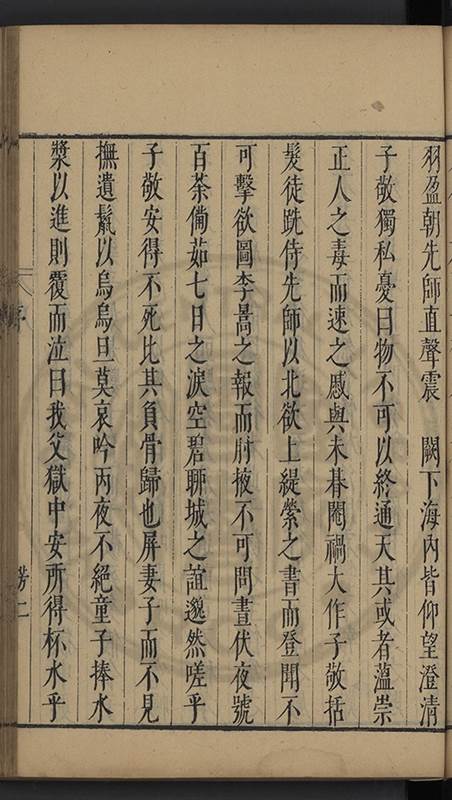 羽盈朝先師直聲震　闕下海內皆仰望澄清
子敬獨私憂曰物不可以終通天其或者薀崇
正人之毒而速之慼與未朞閹禍大作子敬括
髮徒跣侍先師以北欲上緹縈之書而登聞不
可擊欲圖李暠之報而肘掖不可問晝伏夜號
百荼備茹七日之淚空碧聊城之誼邈然嗟乎
子敬安得不死比其負骨歸也屏妻子而不見
撫遺鬣以烏烏旦莫哀吟丙夜不絕童子捧水
漿以進則覆而泣曰我父獄中安所得杯水乎
序
二